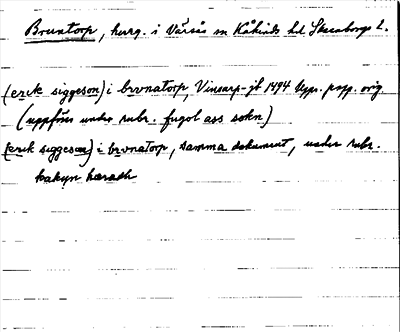 Bruntorp, hmg. i Varsås sn Kåkinds hd Skaraborgs l.
(erik siggeson) i brvnatorp, Vinsarp-jb 1494 Upps. papp. orig.
(uppföres under rubr. fugol ass sokn)
(erik siggeson) i brvnatorp, samma dokument, under rubr.
kakyn hæradh